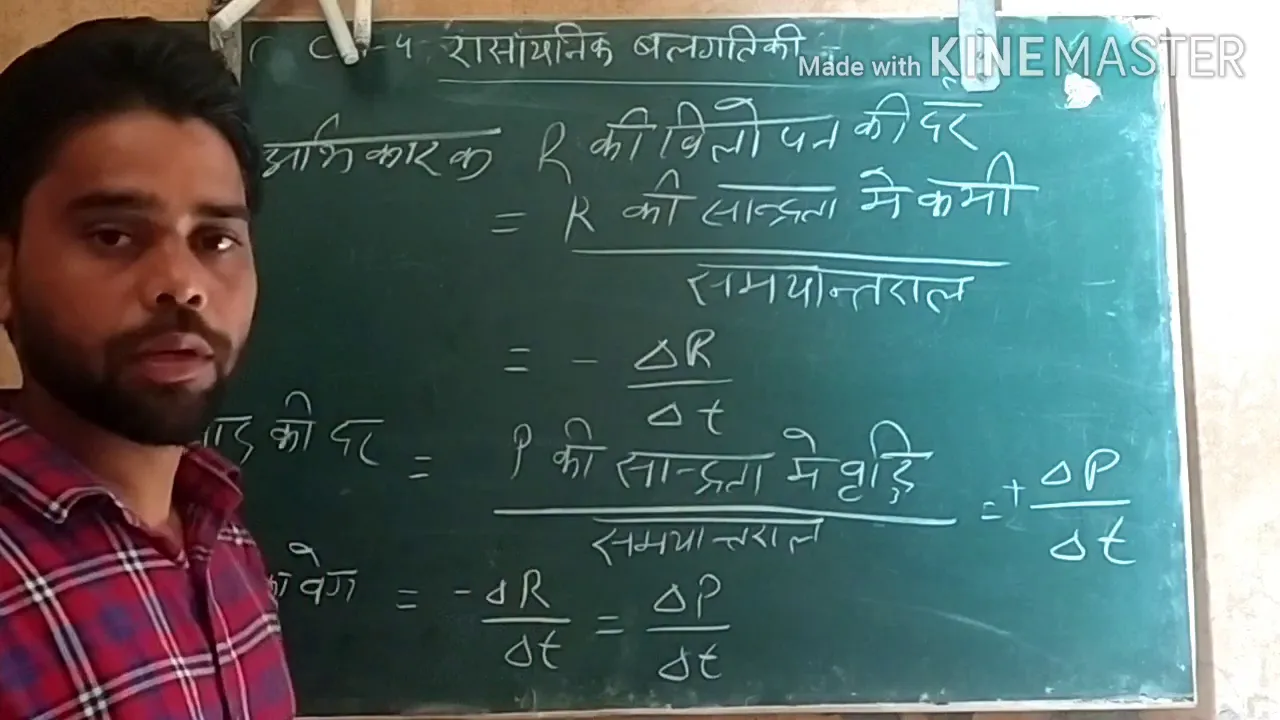 Ch-4 रासायनिक बलगतिकी
Made with KINEMASTER
अभिकारक R की विलोपन की दर
= R की सान्द्रता मे कमी
समयान्तराल
= - ΔR
Δt
की दर = P की सान्द्रता मे वृद्धि = + ΔP
समयान्तराल Δt
वेग = - ΔR = ΔP
Δt Δt